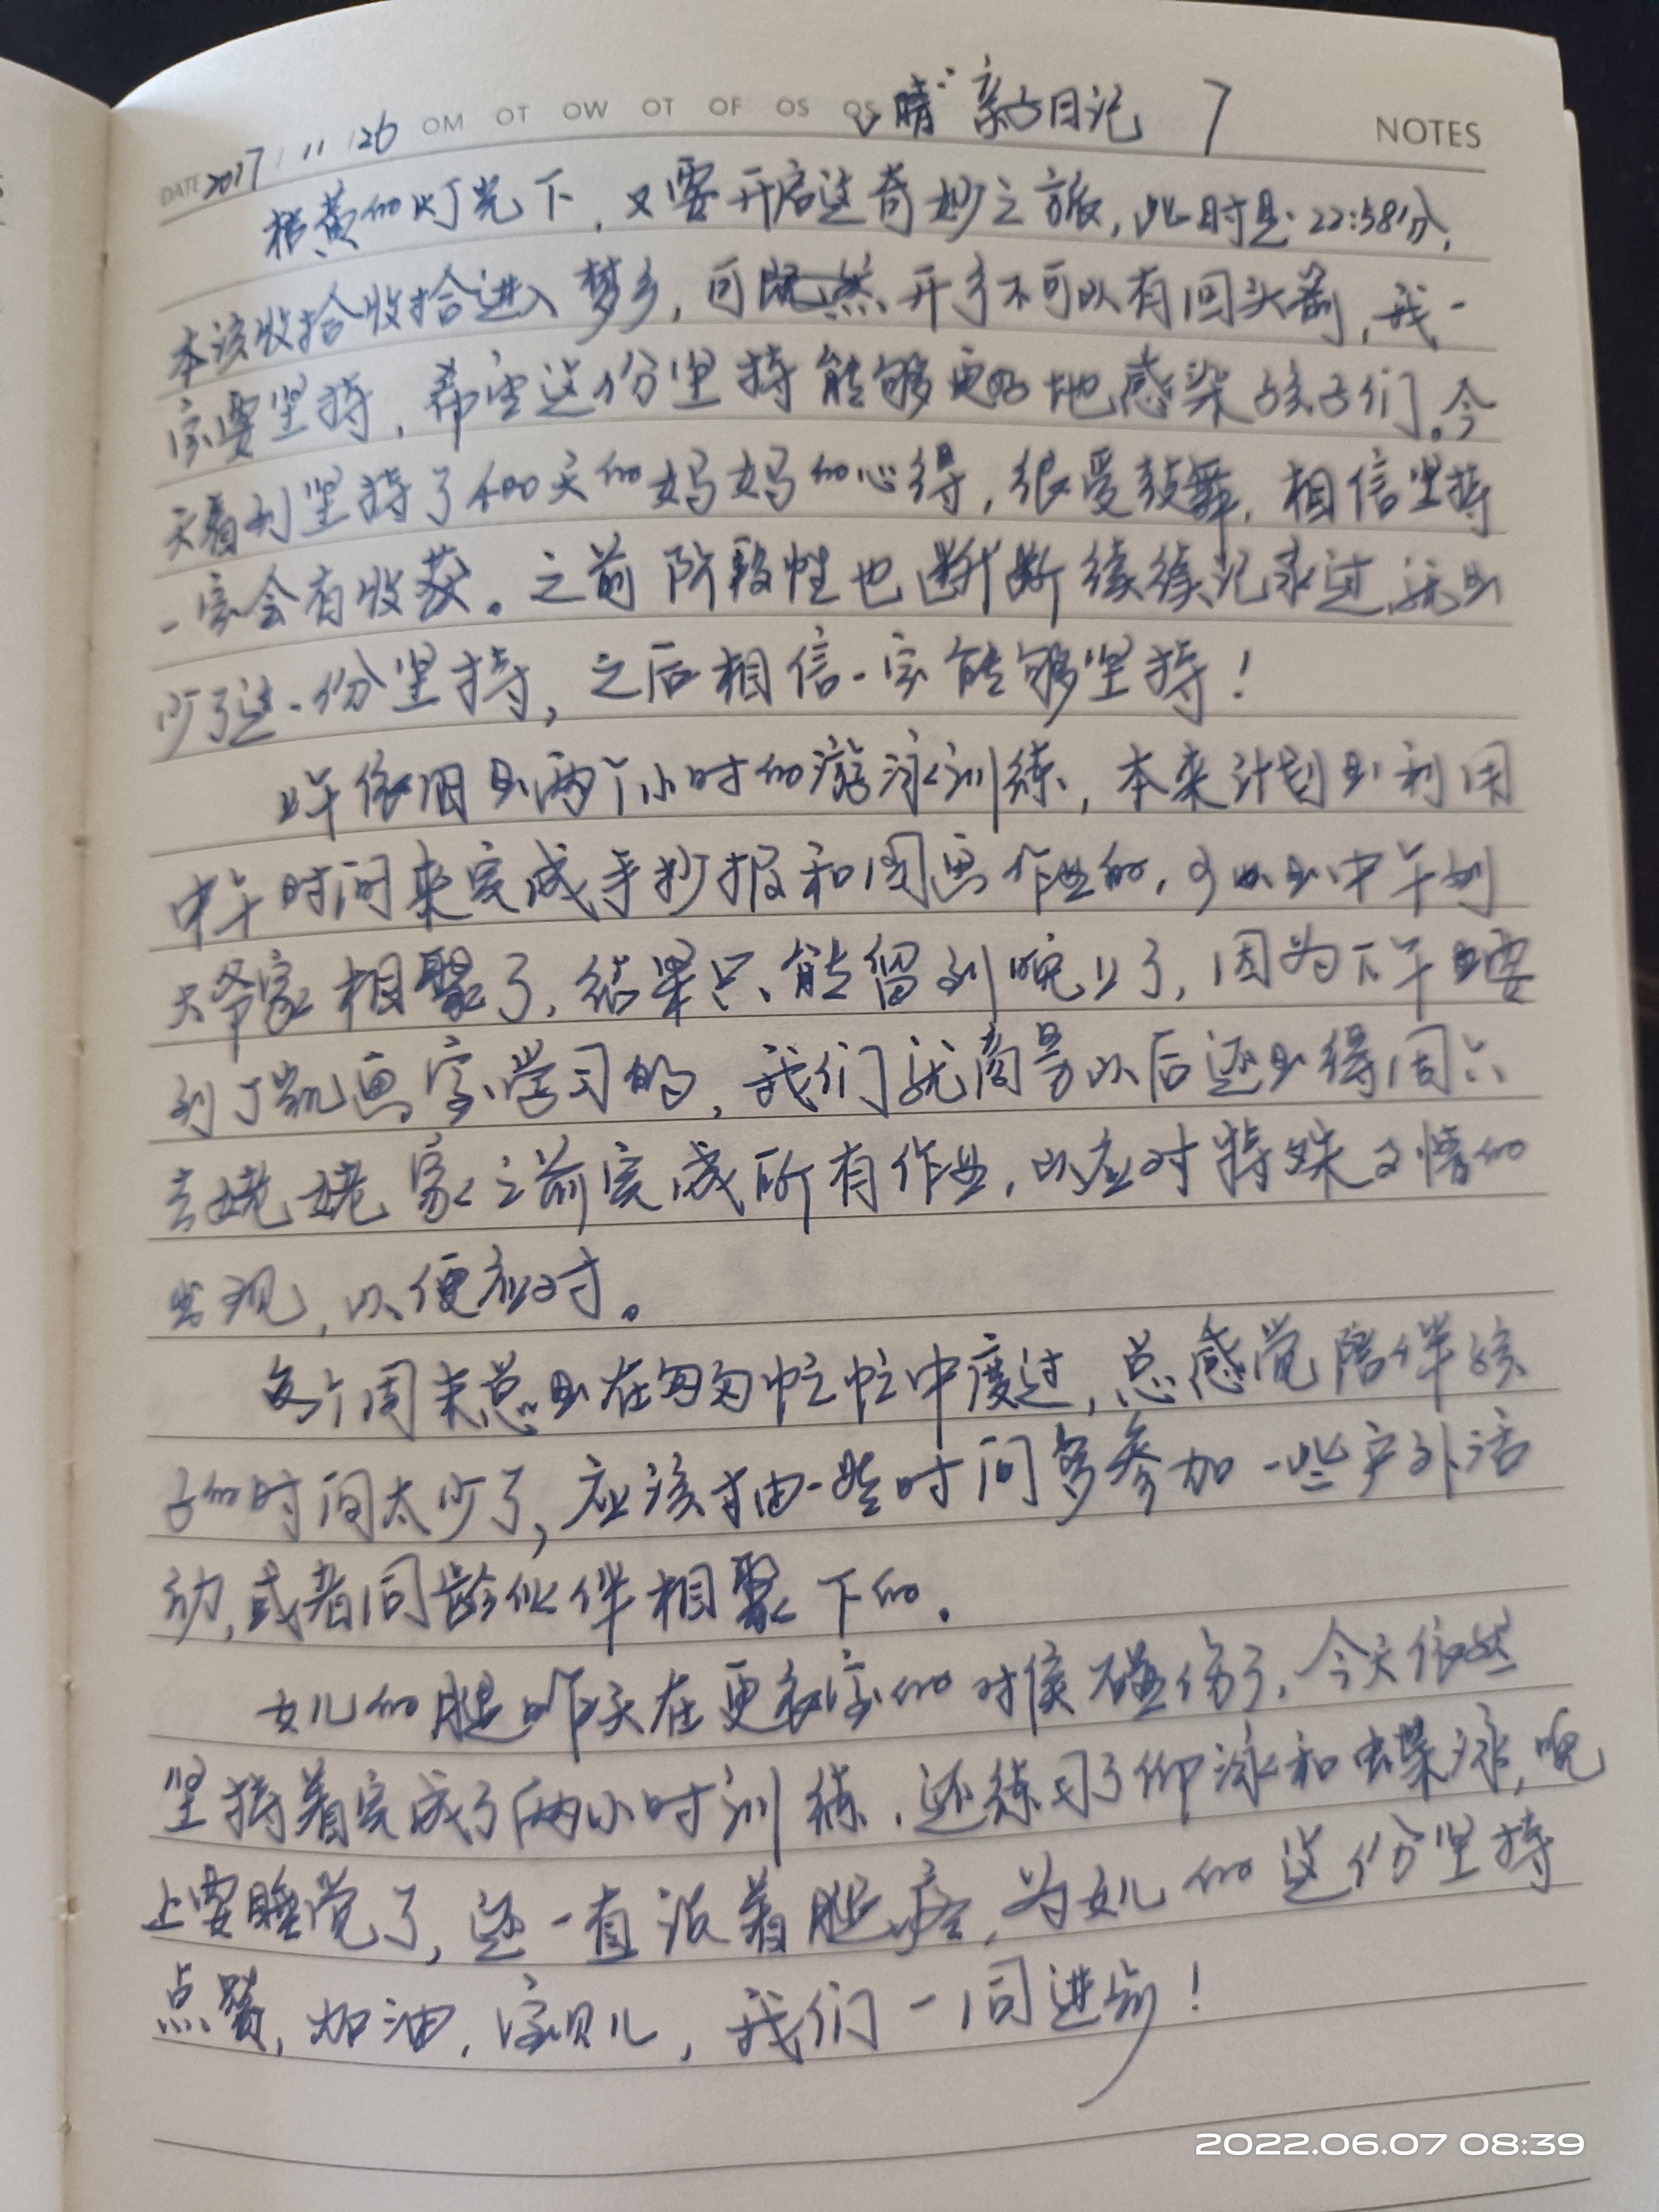 DATE 2017 / 11 / 26 OM OT OW OT OF OS OS 晴 亲子日记 7 NOTES
橘黄的灯光下，又要开启这奇妙之旅，此时是：22:58分，
本该收拾收拾进入梦乡，可既然开了不可以有回头箭，我一
定要坚持，希望这份坚持能够更好地感染孩子们。今
天看到坚持了400天的妈妈的心得，很受鼓舞，相信坚持
一定会有收获。之前阶段性也断断续续记录过，就是
少了这一份坚持，之后相信一定能够坚持！
上午依旧是两个小时的游泳训练，本来计划是利用
中午时间来完成手抄报和国画作业的，可是中午到
大爷家相聚了，结果只能留到晚上了，因为下午要
到丁凯画室学习的，我们就商量以后还是得周六
去姥姥家之前完成所有作业，以应对特殊事情的
出现，以便应对。
每个周末总是在匆匆忙忙中度过，总感觉陪伴孩
子的时间太少了，应该抽一些时间多参加一些户外活
动，或者同龄伙伴相聚下的。
女儿的腿昨天在更衣室的时候碰伤了，今天依然
坚持着完成了两小时训练，还练习了仰泳和蝶泳，晚
上要睡觉了，还一直说着腿疼，为女儿的这份坚持
点赞，加油，宝贝儿，我们一同进步！
2022.06.07 08:39